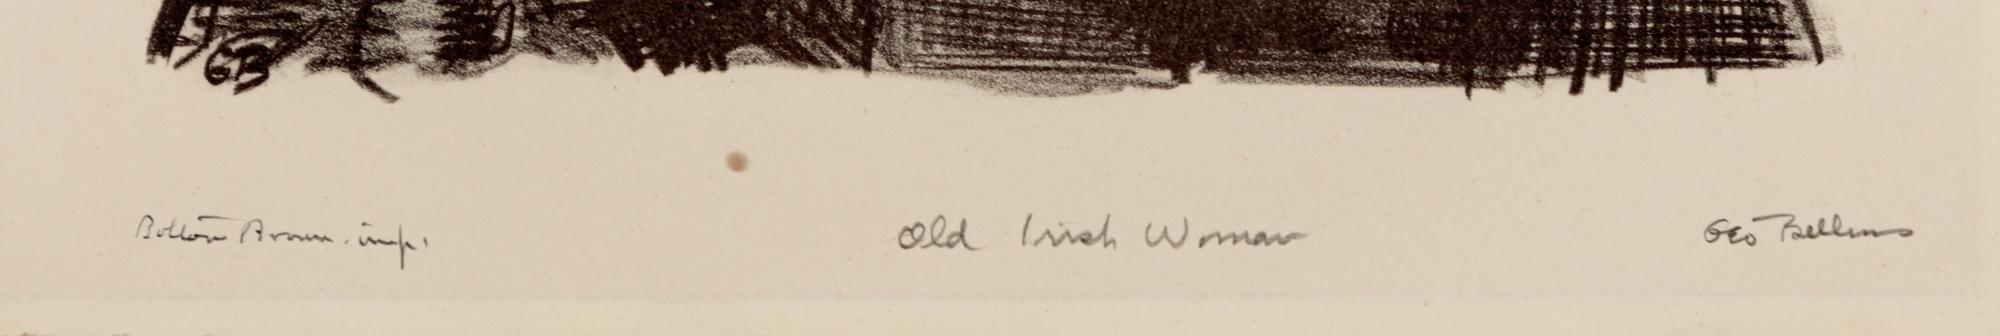 GB
Bolton Brown - imp.
Old Irish Woman
Geo Bellows